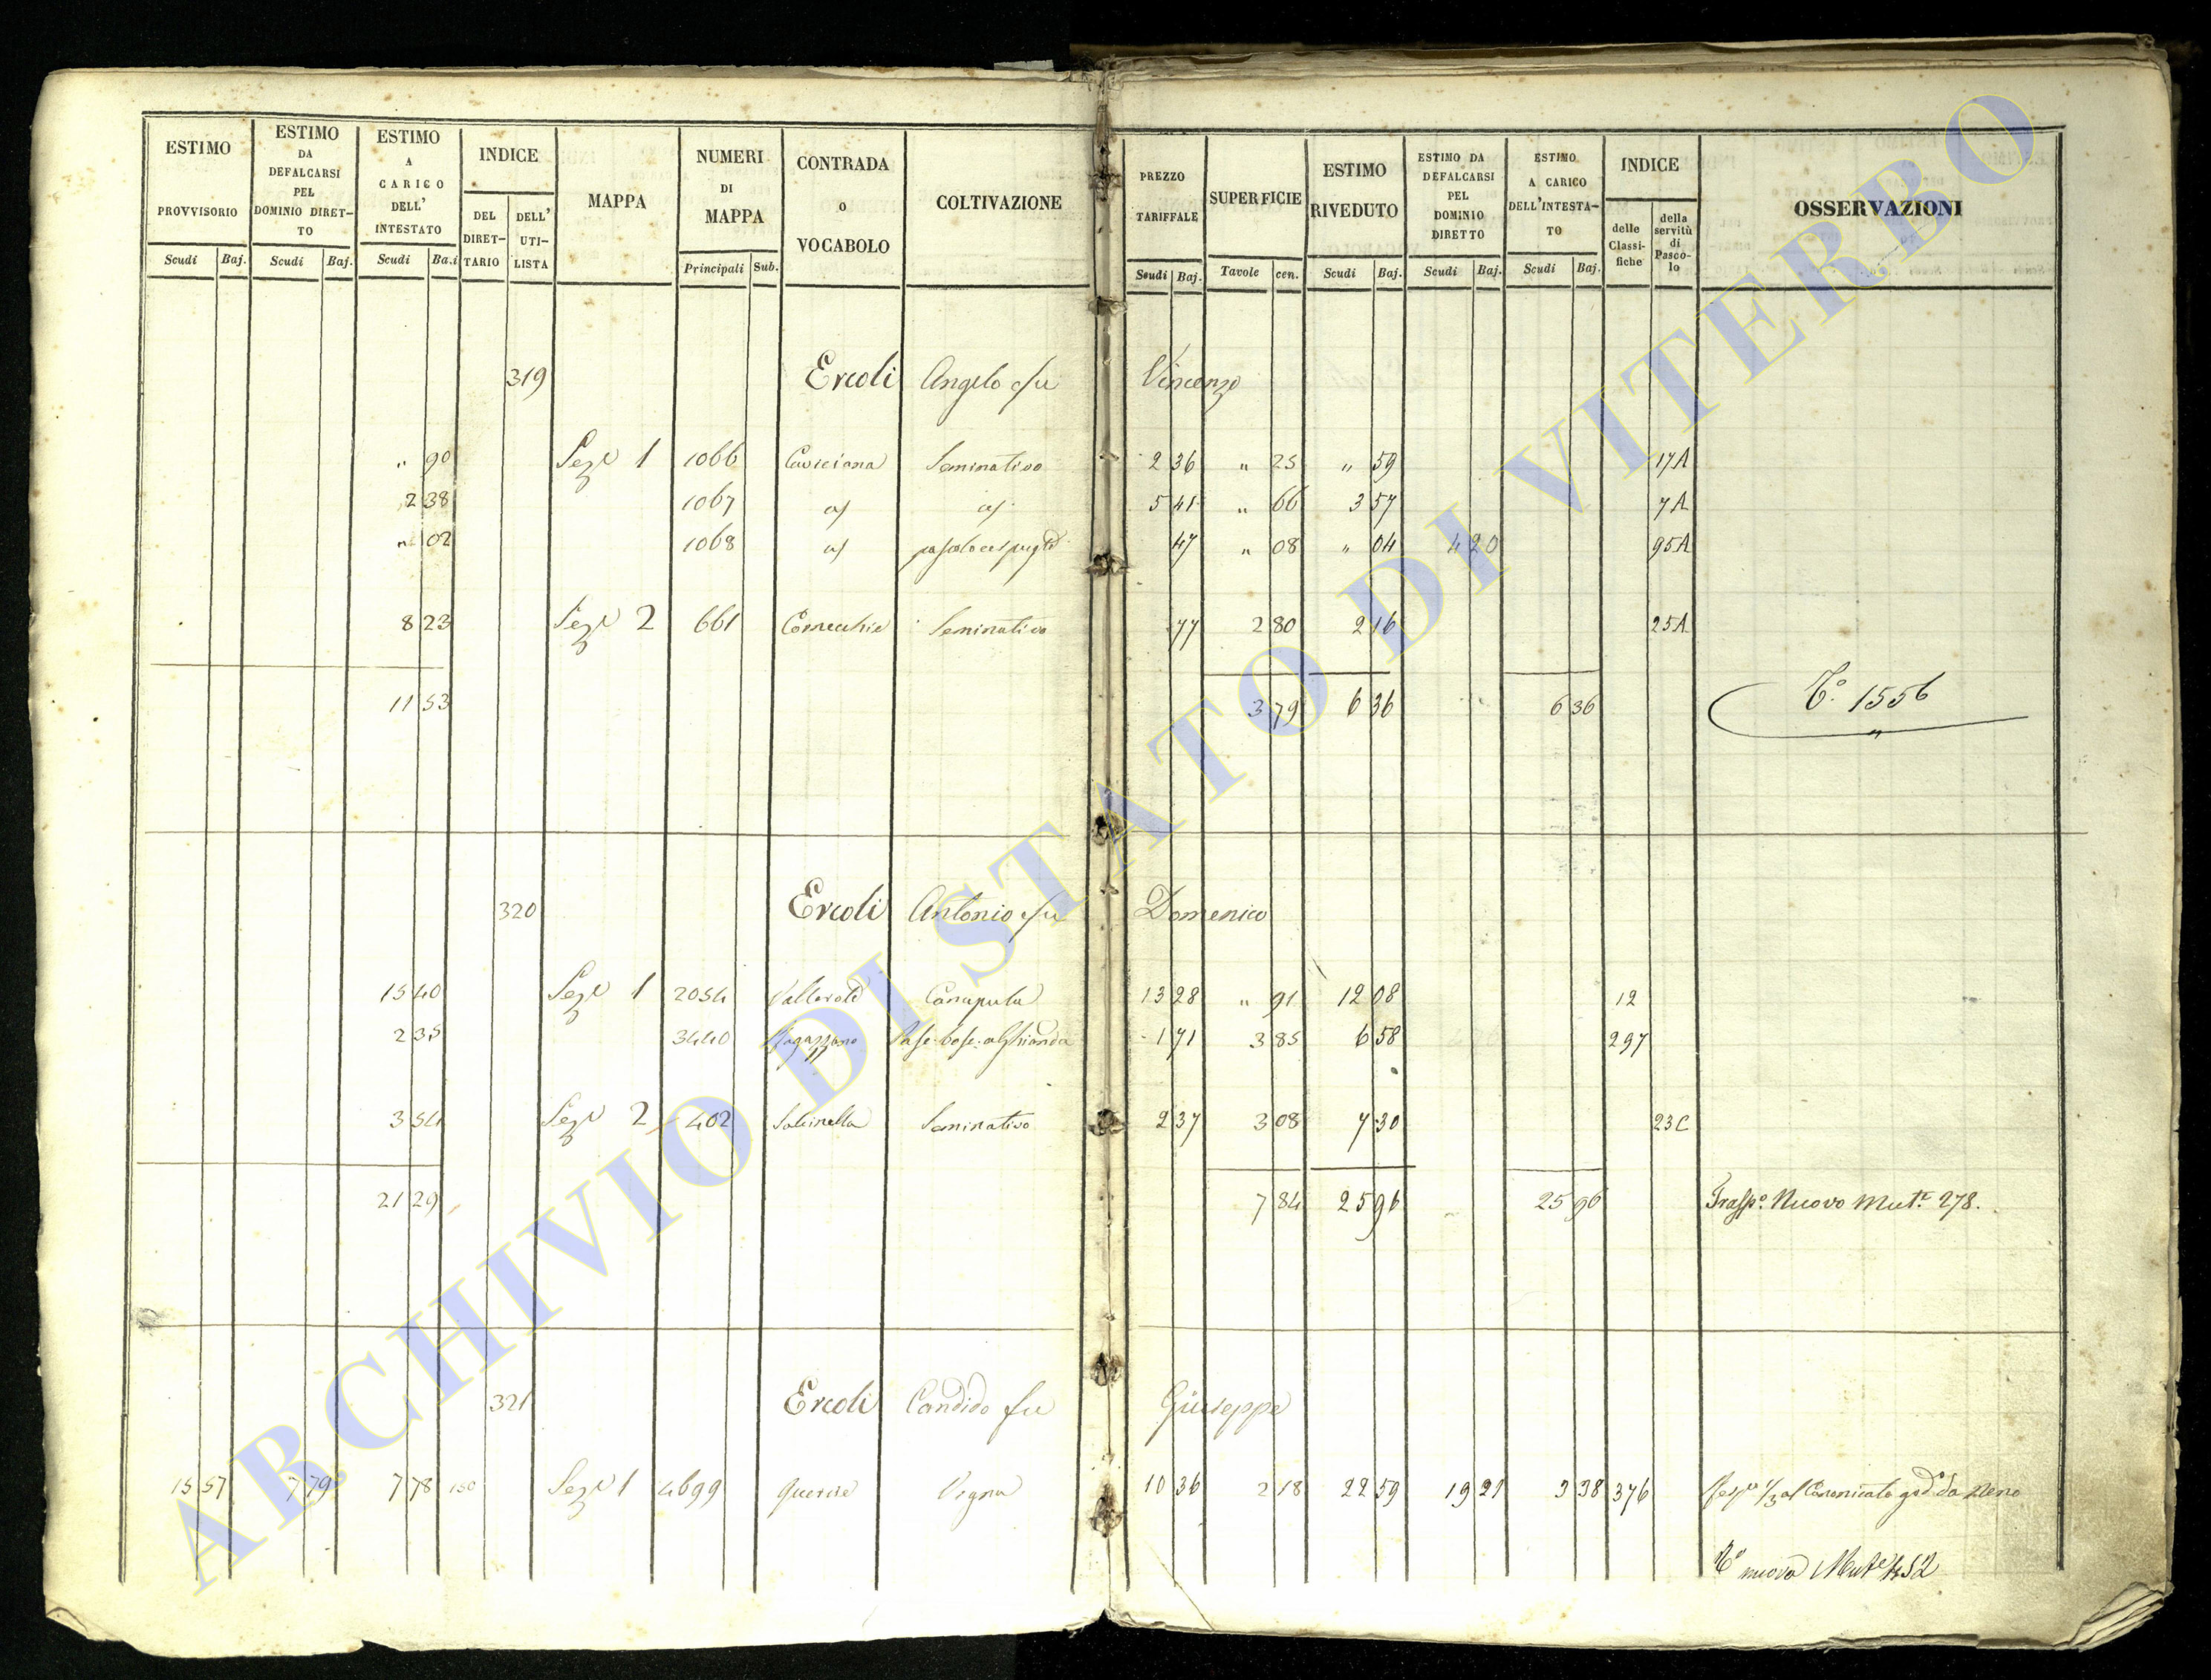 ESTIMO PROVVISORIO Scudi Baj.
ESTIMO DA DEFALCARSI PEL DOMINIO DIRETTO Scudi Baj.
ESTIMO A CARICO DELL' INTESTATO Scudi Baj.
INDICE DEL DIRETTARIO DELL' UTILISTA
MAPPA
NUMERI DI MAPPA Principali Sub.
CONTRADA O VOCABOLO
COLTIVAZIONE
PREZZO TARIFFALE Scudi Baj.
SUPERFICIE Tavole cen.
ESTIMO RIVEDUTO Scudi Baj.
ESTIMO DA DEFALCARSI PEL DOMINIO DIRETTO Scudi Baj.
ESTIMO A CARICO DELL'INTESTATO Scudi Baj.
INDICE delle Classifiche della servitù di Pascolo
OSSERVAZIONI
319 Ercoli Angelo fu Vincenzo
" 90 Seze 1 1066 Seminativo 2 36 " 25 " 59 17A
2 38 1067 5 41 " 66 3 57 7A
" 02 1068 47 " 08 " 04 4 20 95A
8 23 Seze 2 661 Cornecchie Seminativo 77 2 80 2 16 25A
11 53 3 79 6 36 6 36 To. 1556
320 Ercoli Antonio fu Domenico
15 40 Seze 1 2054 Canapula 13 28 " 91 12 08 12
2 35 3440 Ragazzano 1 71 3 85 6 58 297
3 54 Seze 2 402 Salcinella Seminativo 2 37 3 08 7 30 23C
21 29 7 84 25 96 25 96 Traspo. Nuovo Mute. 278.
321 Ercoli Candido fu Giuseppe
15 57 7 79 7 78 150 Seze 1 4699 Quercie Vigna 10 36 2 18 22 59 19 21 3 38 376 1/3 al Canonicato god. da
To nuova Mute
ARCHIVIO DI STATO DI VITERBO